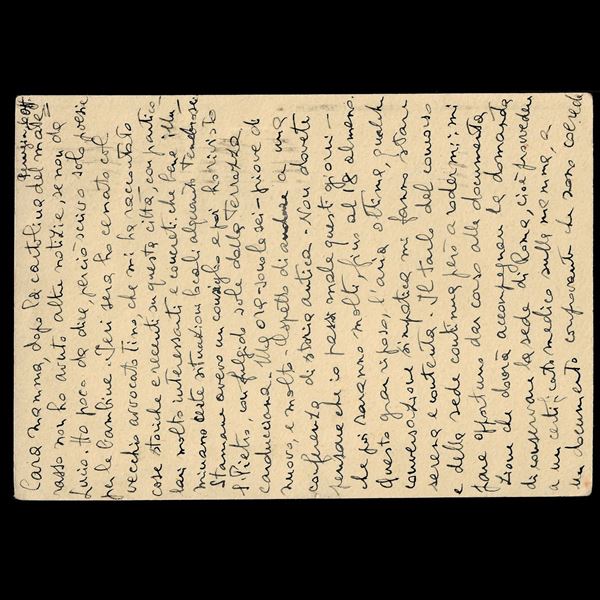 Perugia 70tt.
Cara mamma, dopo la cartolina del mate-
rasso non ho avuto altre notizie, se non da
Lucio. Ho poco da dire, perciò scrivo solo
per le bambine. Ieri sera ho cenato col
vecchio avvocato Tino, che mi ha raccontato
cose storiche e recenti su questa città, con partico-
lari molto interessanti e concreti che bene illu-
minano certe situazioni locali alquanto
Stamane avevo un consiglio e poi ho rivisto
S. Pietro, con fulgido sole dalla Terrazza
carducciana. Ma ora - sono le sei - piove di
nuovo, e molto. Aspetto di andare a una
conferenza di storia antica. Non dovete
pensare che io passi male questi giorni -
che poi saranno molti, fino al 18 almeno.
Questo gran riposo, l'aria ottima, qualche
conversazione simpatica mi fanno stare
serena e contenta. Il tarlo del concorso
e della sede continua però a rodermi: mi
pare opportuno dar corso alla documenta
zione che dovrà accompagnare la domanda
di conservare la sede di Roma, cioè provvedere
a un certificato medico sulla mamma, a
un documento comprovante che sono